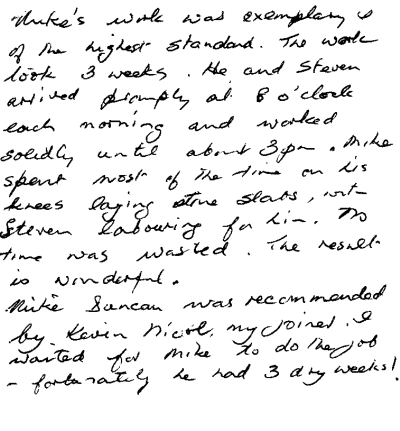 Mike's work was exemplary &
of the highest standard. The work
took 3 weeks. He and Steven
arrived promply at 8 o'clock
each morning and worked
solidly until about 3pm. Mike
spent most of the time on his
knees laying stone slabs, with
Steven labouring for him. No
time was wasted. The result
is wonderful.
Mike Duncan was recommended
by Kevin Nicol, my joiner. I
waited for Mike to do the job
- fortunately he had 3 dry weeks!